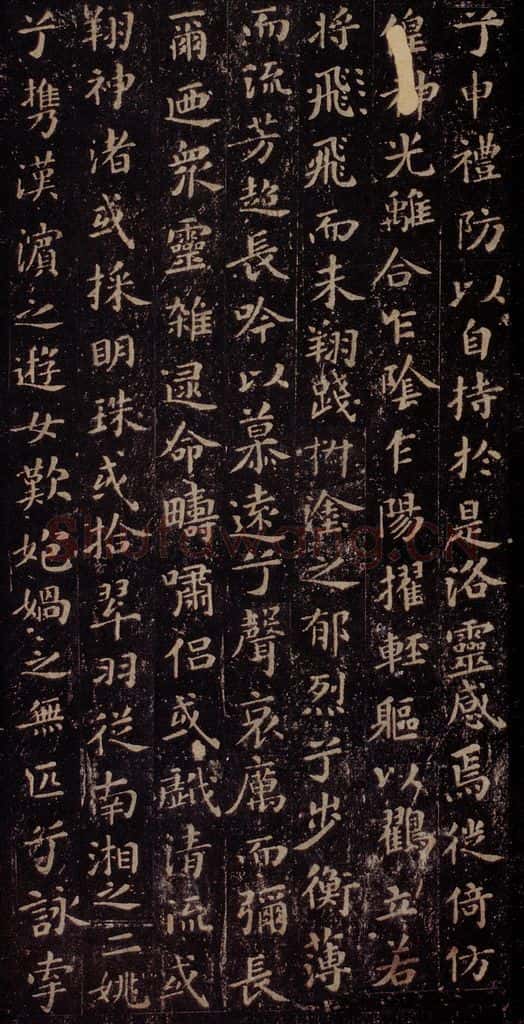 兮申禮防以自持於是洛靈感焉徙倚仿
偟神光離合乍陰乍陽擢輕軀以鸖立若
将飛飛而未翔踐椒塗之郁烈兮步衡薄
而流芳超長吟以慕遠兮聲哀厲而彌長
爾迺衆靈雜遝命疇嘯侣或戲清流或
翔神渚或採明珠或拾翠羽從南湘之二姚
兮攜漢濱之遊女歎匏媧之無匹兮詠牽
Shufawang.CN